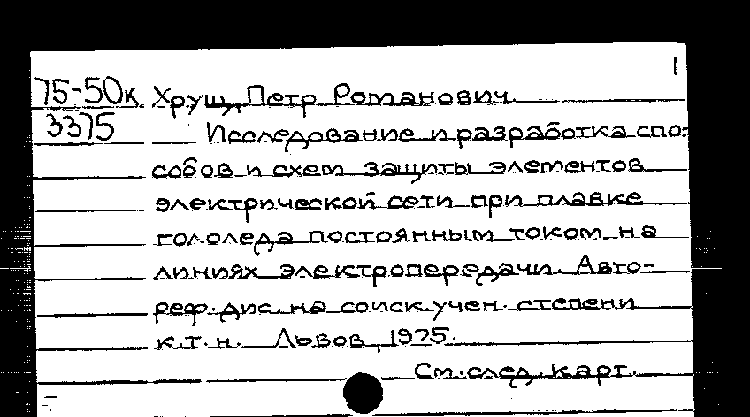 1
75-50к Хрущ, Петр Романович.
3375 Исследование и разработка спо-
собов и схем защиты элементов
электрической сети при плавке
гололеда постоянным током на
линиях электропередачи. Авто-
реф. дис. на соиск. учен. степени
к.т.н. Львов, 1975.
См. след. карт.